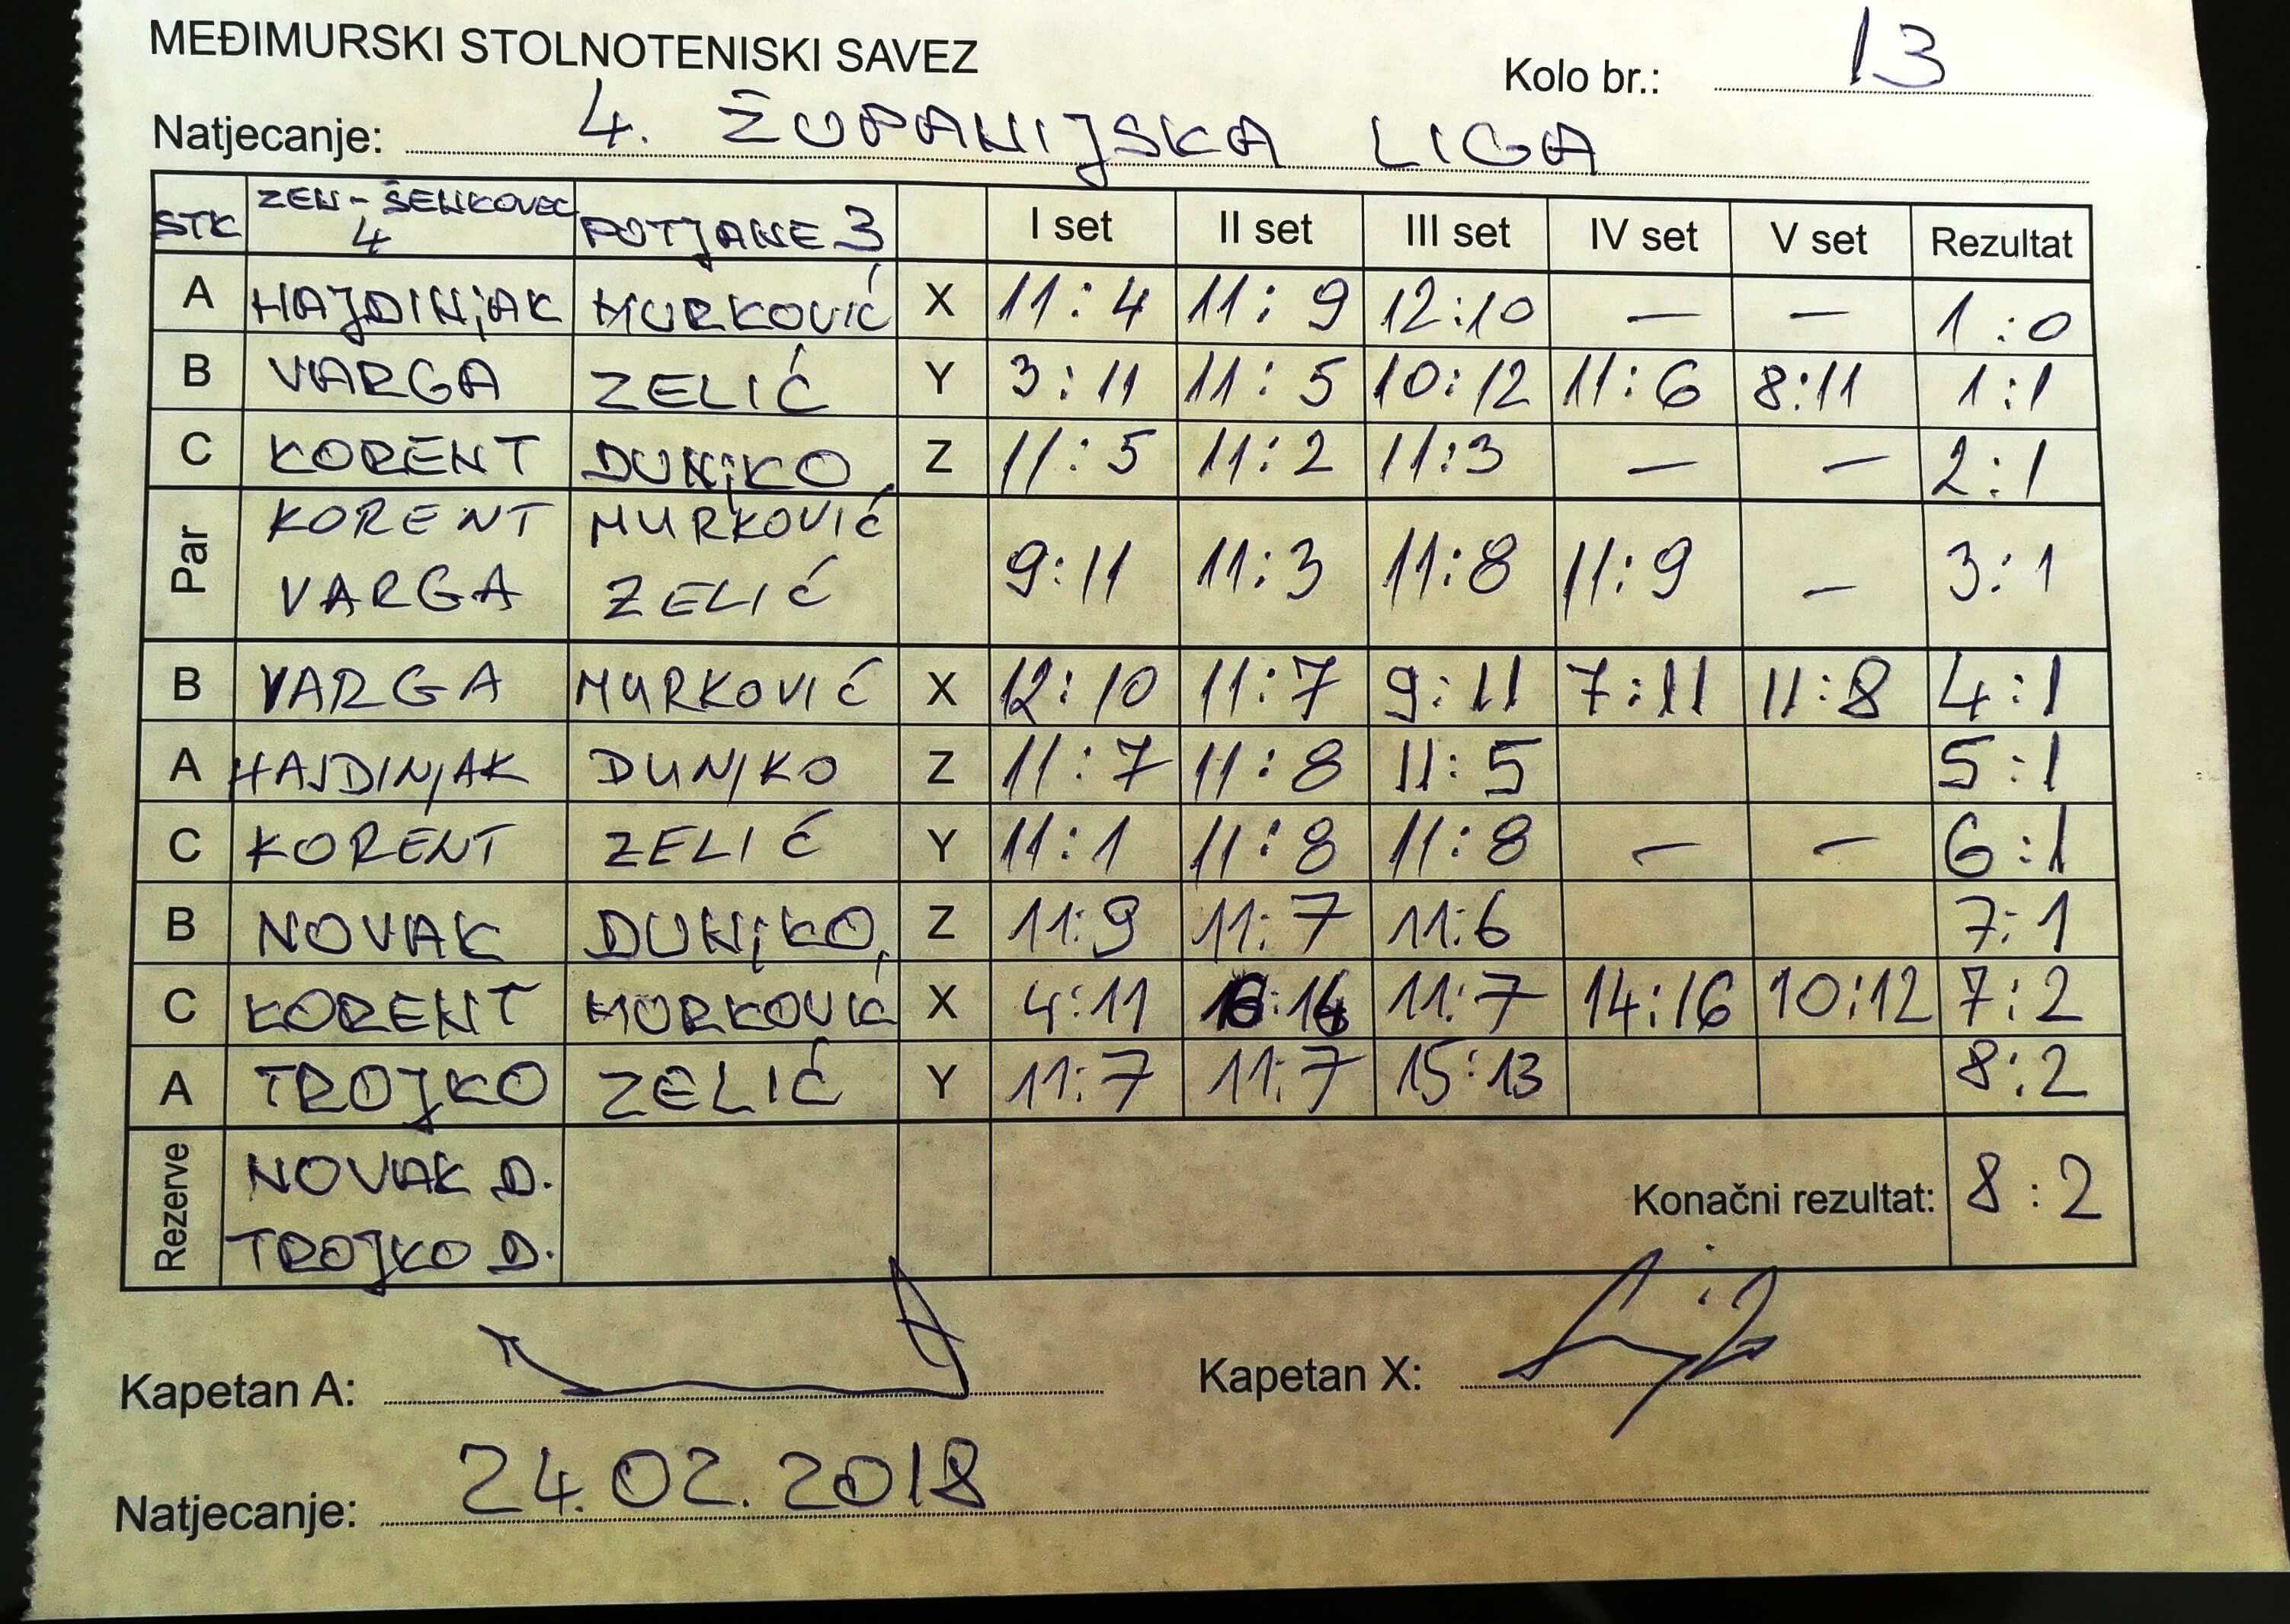 MEĐIMURSKI STOLNOTENISKI SAVEZ
Kolo br.: 13
Natjecanje: 4. ŽUPANIJSKA LIGA
STK ZEN-ŠENKOVEC 4 POTJANE 3 I set II set III set IV set V set Rezultat
A HAJDINJAK MURKOVIĆ X 11:4 11:9 12:10 — — 1:0
B VARGA ZELIĆ Y 3:11 11:5 10:12 11:6 8:11 1:1
C KORENT DUNJKO Z 11:5 11:2 11:3 — — 2:1
Par KORENT VARGA MURKOVIĆ ZELIĆ 9:11 11:3 11:8 11:9 — 3:1
B VARGA MURKOVIĆ X 12:10 11:7 9:11 7:11 11:8 4:1
A HAJDINJAK DUNJKO Z 11:7 11:8 11:5 5:1
C KORENT ZELIĆ Y 11:1 11:8 11:8 — — 6:1
B NOVAK DUNJKO Z 11:9 11:7 11:6 7:1
C KORENT MURKOVIĆ X 4:11 11:7 14:16 10:12 7:2
A TROJKO ZELIĆ Y 11:7 11:7 15:13 8:2
Rezerve NOVAK D.
TROJKO D.
Konačni rezultat: 8:2
Kapetan A: Kapetan X:
Natjecanje: 24.02.2018